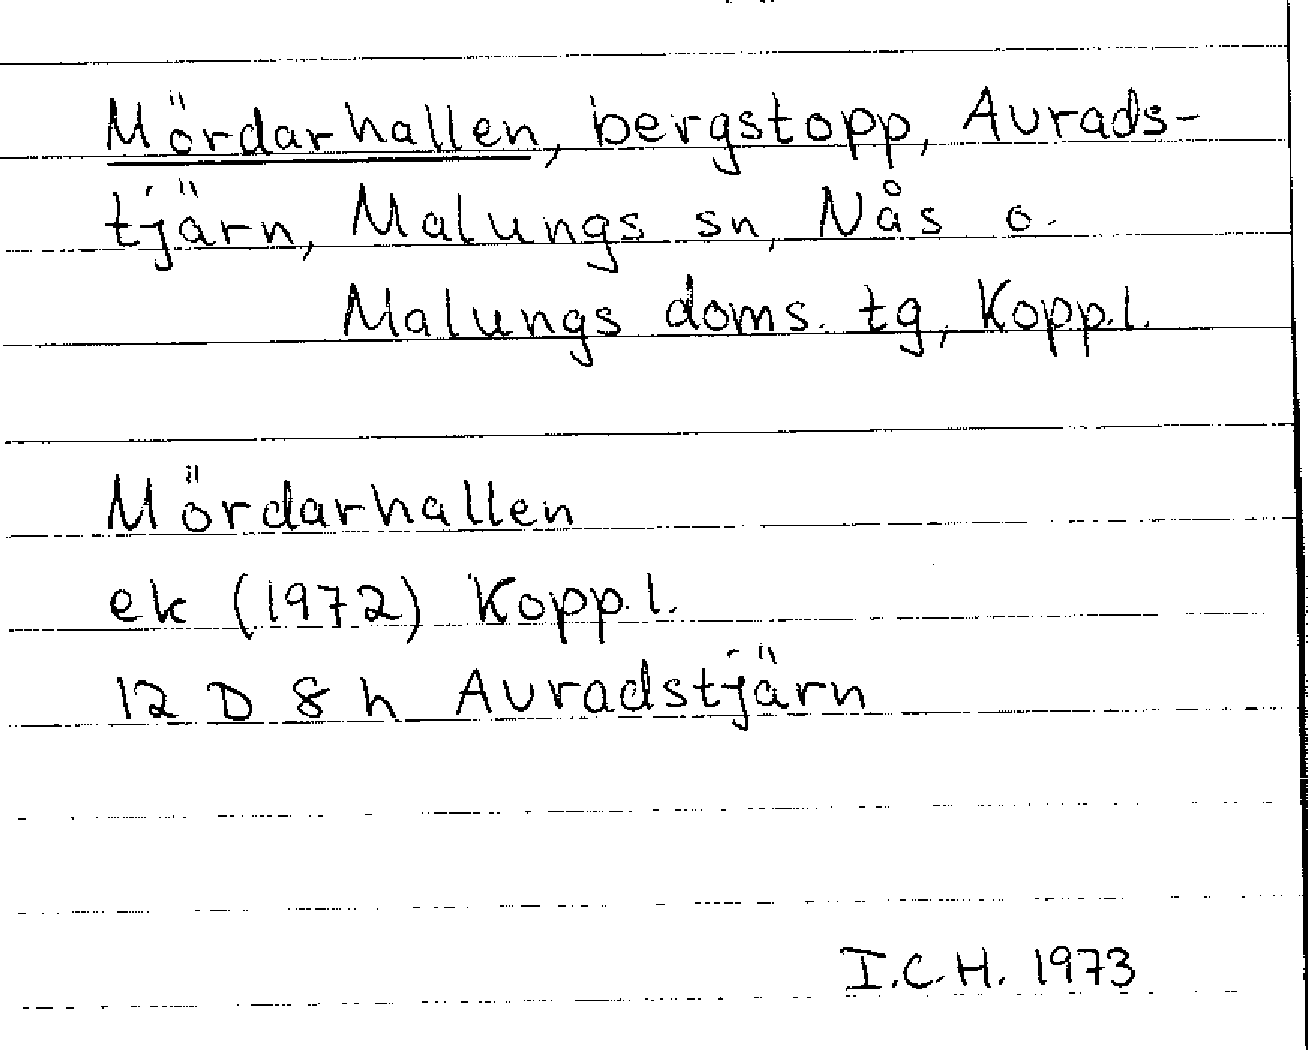 Mördarhallen, bergstopp, Aurads-
tjärn, Malungs sn, Nås o.
Malungs doms. tg, Kopp.l.
Mördarhallen
ek (1972) Kopp.l.
12 D 8 h Auradstjärn
I.C.H. 1973